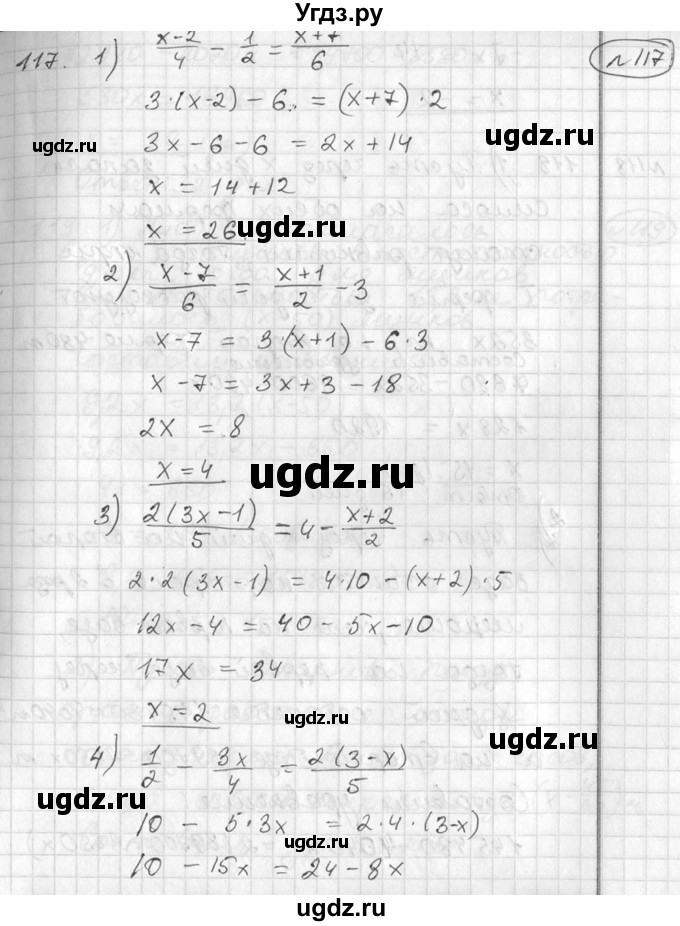 Угдз.ру
117. 1) (x-2)/4 - 1/2 = (x+7)/6
№117
3·(x-2) - 6 = (x+7)·2
ugdz.ru ugdz.ru
3x - 6 - 6 = 2x + 14
ugdz.ru
x = 14 + 12
x = 26
2) (x-7)/6 = (x+1)/2 - 3
x - 7 = 3·(x+1) - 6·3
x - 7 = 3x + 3 - 18
2x = 8
x = 4
ugdz.ru
3) 2(3x-1)/5 = 4 - (x+2)/2
2·2(3x-1) = 4·10 - (x+2)·5
12x - 4 = 40 - 5x - 10
17x = 34
x = 2
ugdz.ru
4) 1/2 - 3x/4 = 2(3-x)/5
ugdz.ru
10 - 5·3x = 2·4·(3-x)
ugdz.ru
10 - 15x = 24 - 8x
ugdz.ru